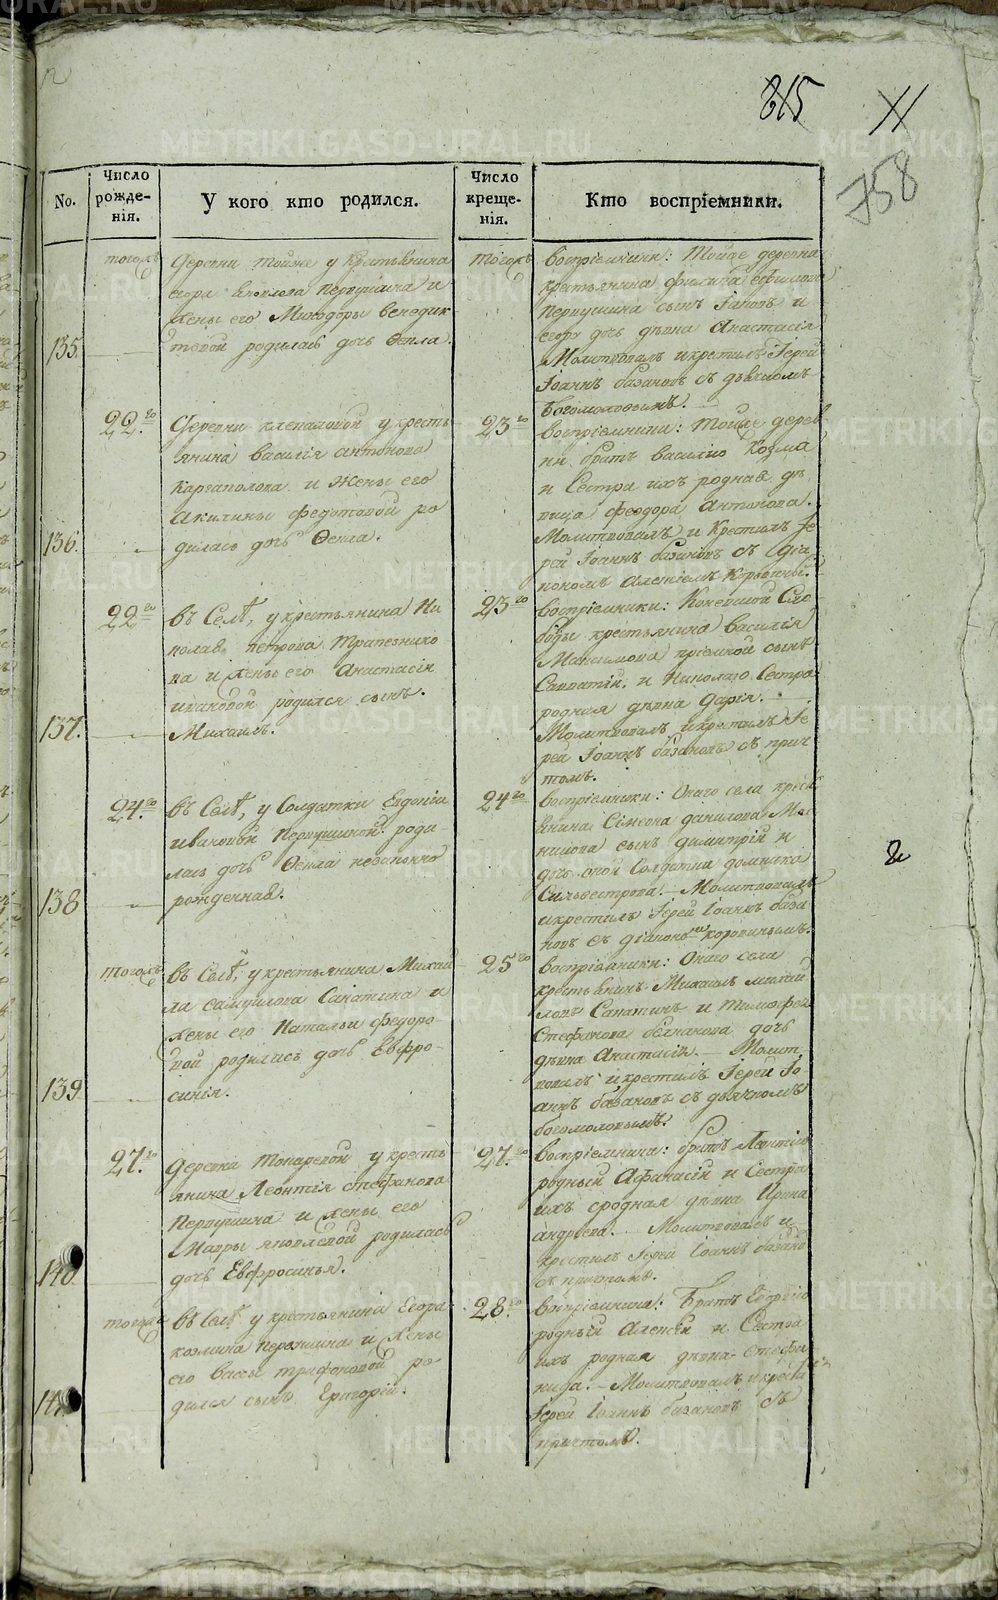 815
11
758
No.
Число рожде-нія.
У кого кто родился.
Число креще-нія.
Кто воспріемники.
135.
тогожъ
Деревни тойже у крестьянина
Егора Первушина и
жены его Минодоры Венедик
товой родилась дочь Фекла.
тогожъ
Воспріемники: Тойже деревни
крестьянина Филипа Ефимова
Первушина сынъ и
Егору дочь дѣвка Анастасія
Молитвовалъ и крестилъ Іерей
Іоаннъ Базановъ съ дьячкомъ
Богомоловымъ.
136.
22.го
Деревни Клепаловой у кресть
янина Василія Антонова
Каргаполова и жены его
Акилины Федотовой ро
дилась дочь Фекла.
23го
Воспріемники: Тойже дерев
ни братъ Василію Козма
и Сестра ихъ родная дѣ
вица Феодора Антонова.
Молитвовалъ и Крестилъ Іе
рей Іоаннъ Базановъ съ діа
кономъ Алексіемъ
137.
22го
Въ Селѣ, у крестьянина Ни
колая Петрова Трапезнико
ва и жены его Анастасіи
Ивановой родился сынъ
Михаилъ.
23го
Воспріемники: Сло
боды крестьянина Василія
Максимова пріемной сынъ
и Николаю Сестра
родная дѣвка Дарія.
Молитвовалъ и крестилъ Іе
рей Іоаннъ Базановъ съ прич
томъ.
138
24.го
Въ Селѣ, у Солдатки Евдокіи
Ивановой Первушиной роди
лась дочь Фекла незаконно
рожденная.
24го
Воспріемники: Онаго села крест
янина Симеона Данилова
сынъ Димитрій и
дочь оной Солдатки Домника
Сильвестрова. Молитвовалъ
и крестилъ Іерей Іоаннъ База
новъ съ діакономъ Коровинымъ.
2
139
тогожъ
Въ Селѣ, у крестьянина Михаи
ла Самуилова Сапатина и
жены его Натальи Федоро-
вой родилась дочь Евфро-
синія.
25го
Воспріемники: Онаго села
крестьянинъ Михаилъ Михаи
ловъ Сапатинъ и Тимофея
Стефанова дочь
дѣвка Анастасія. — Молит
вовалъ и крестилъ Іерей Іо
аннъ Базановъ съ дьячкомъ
Богомоловымъ.
140
27.го
Деревни Токаревой у кресть
янина Леонтія Стефанова
Первушина и жены его
Мавры Яковлевой родилась
дочь Евфросинья.
27.го
Воспріемники: братъ Леонтію
родный Афанасій и Сестра
ихъ сродная дѣвка Ирина
Андреева. Молитвовалъ и
крестилъ Іерей Іоаннъ Базано
съ причтомъ.
141
тогожъ
Въ Селѣ у крестьянина Егора
Козмина Первушина и жены
его Вассы Трифоновой ро-
дился сынъ Григорій.
28.го
Воспріемники: Братъ Егорію
родный Алексѣй и Сестра
ихъ родная дѣвка Стефа
нида. — Молитвовалъ и крести
Іерей Іоаннъ Базановъ съ
причтомъ.